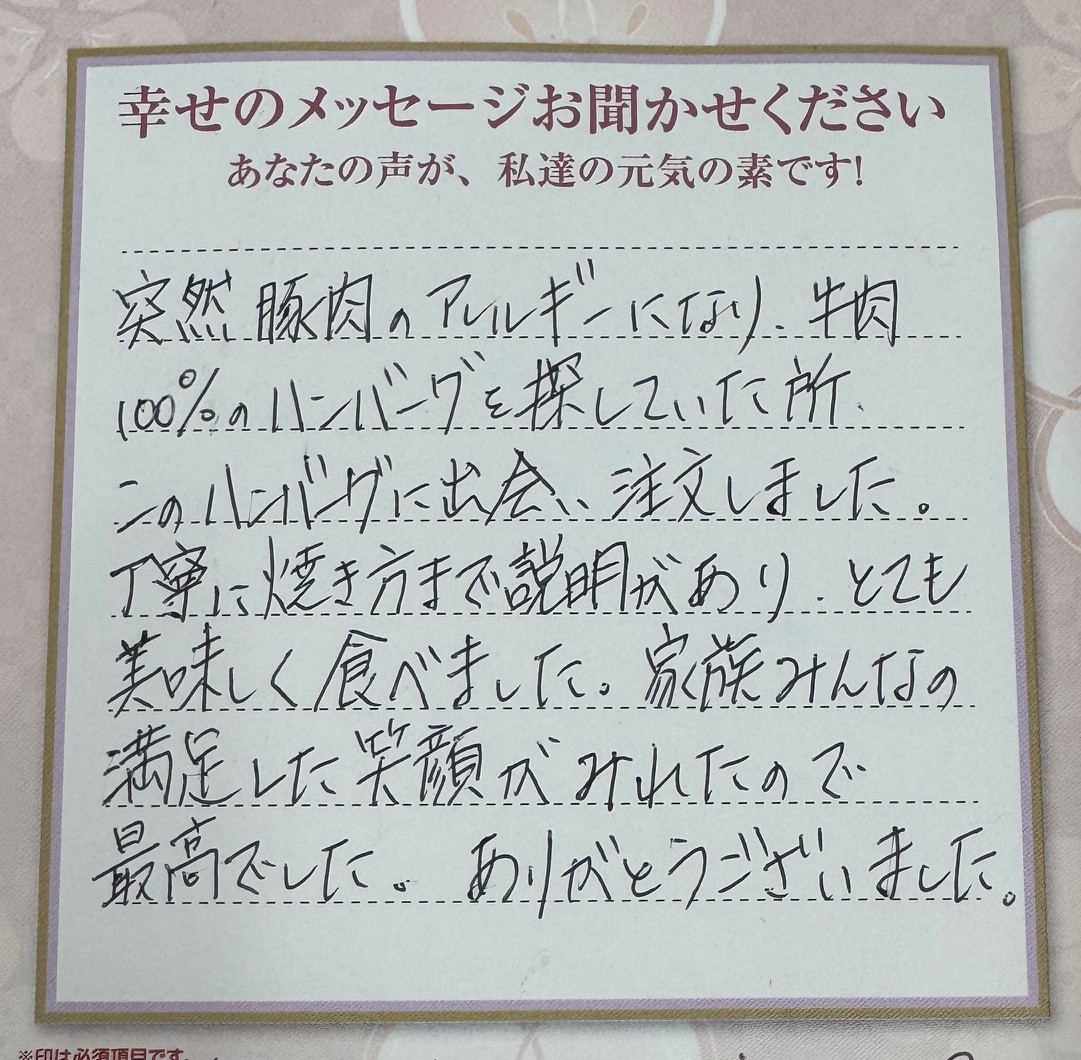 幸せのメッセージお聞かせください
あなたの声が、私達の元気の素です!
突然豚肉のアレルギーになり、牛肉
100%のハンバーグを探していた所、
このハンバーグに出会い、注文しました。
丁寧に焼き方まで説明があり、とても
美味しく食べました。家族みんなの
満足した笑顔がみれたので
最高でした。ありがとうございました。
※印は必須項目です。